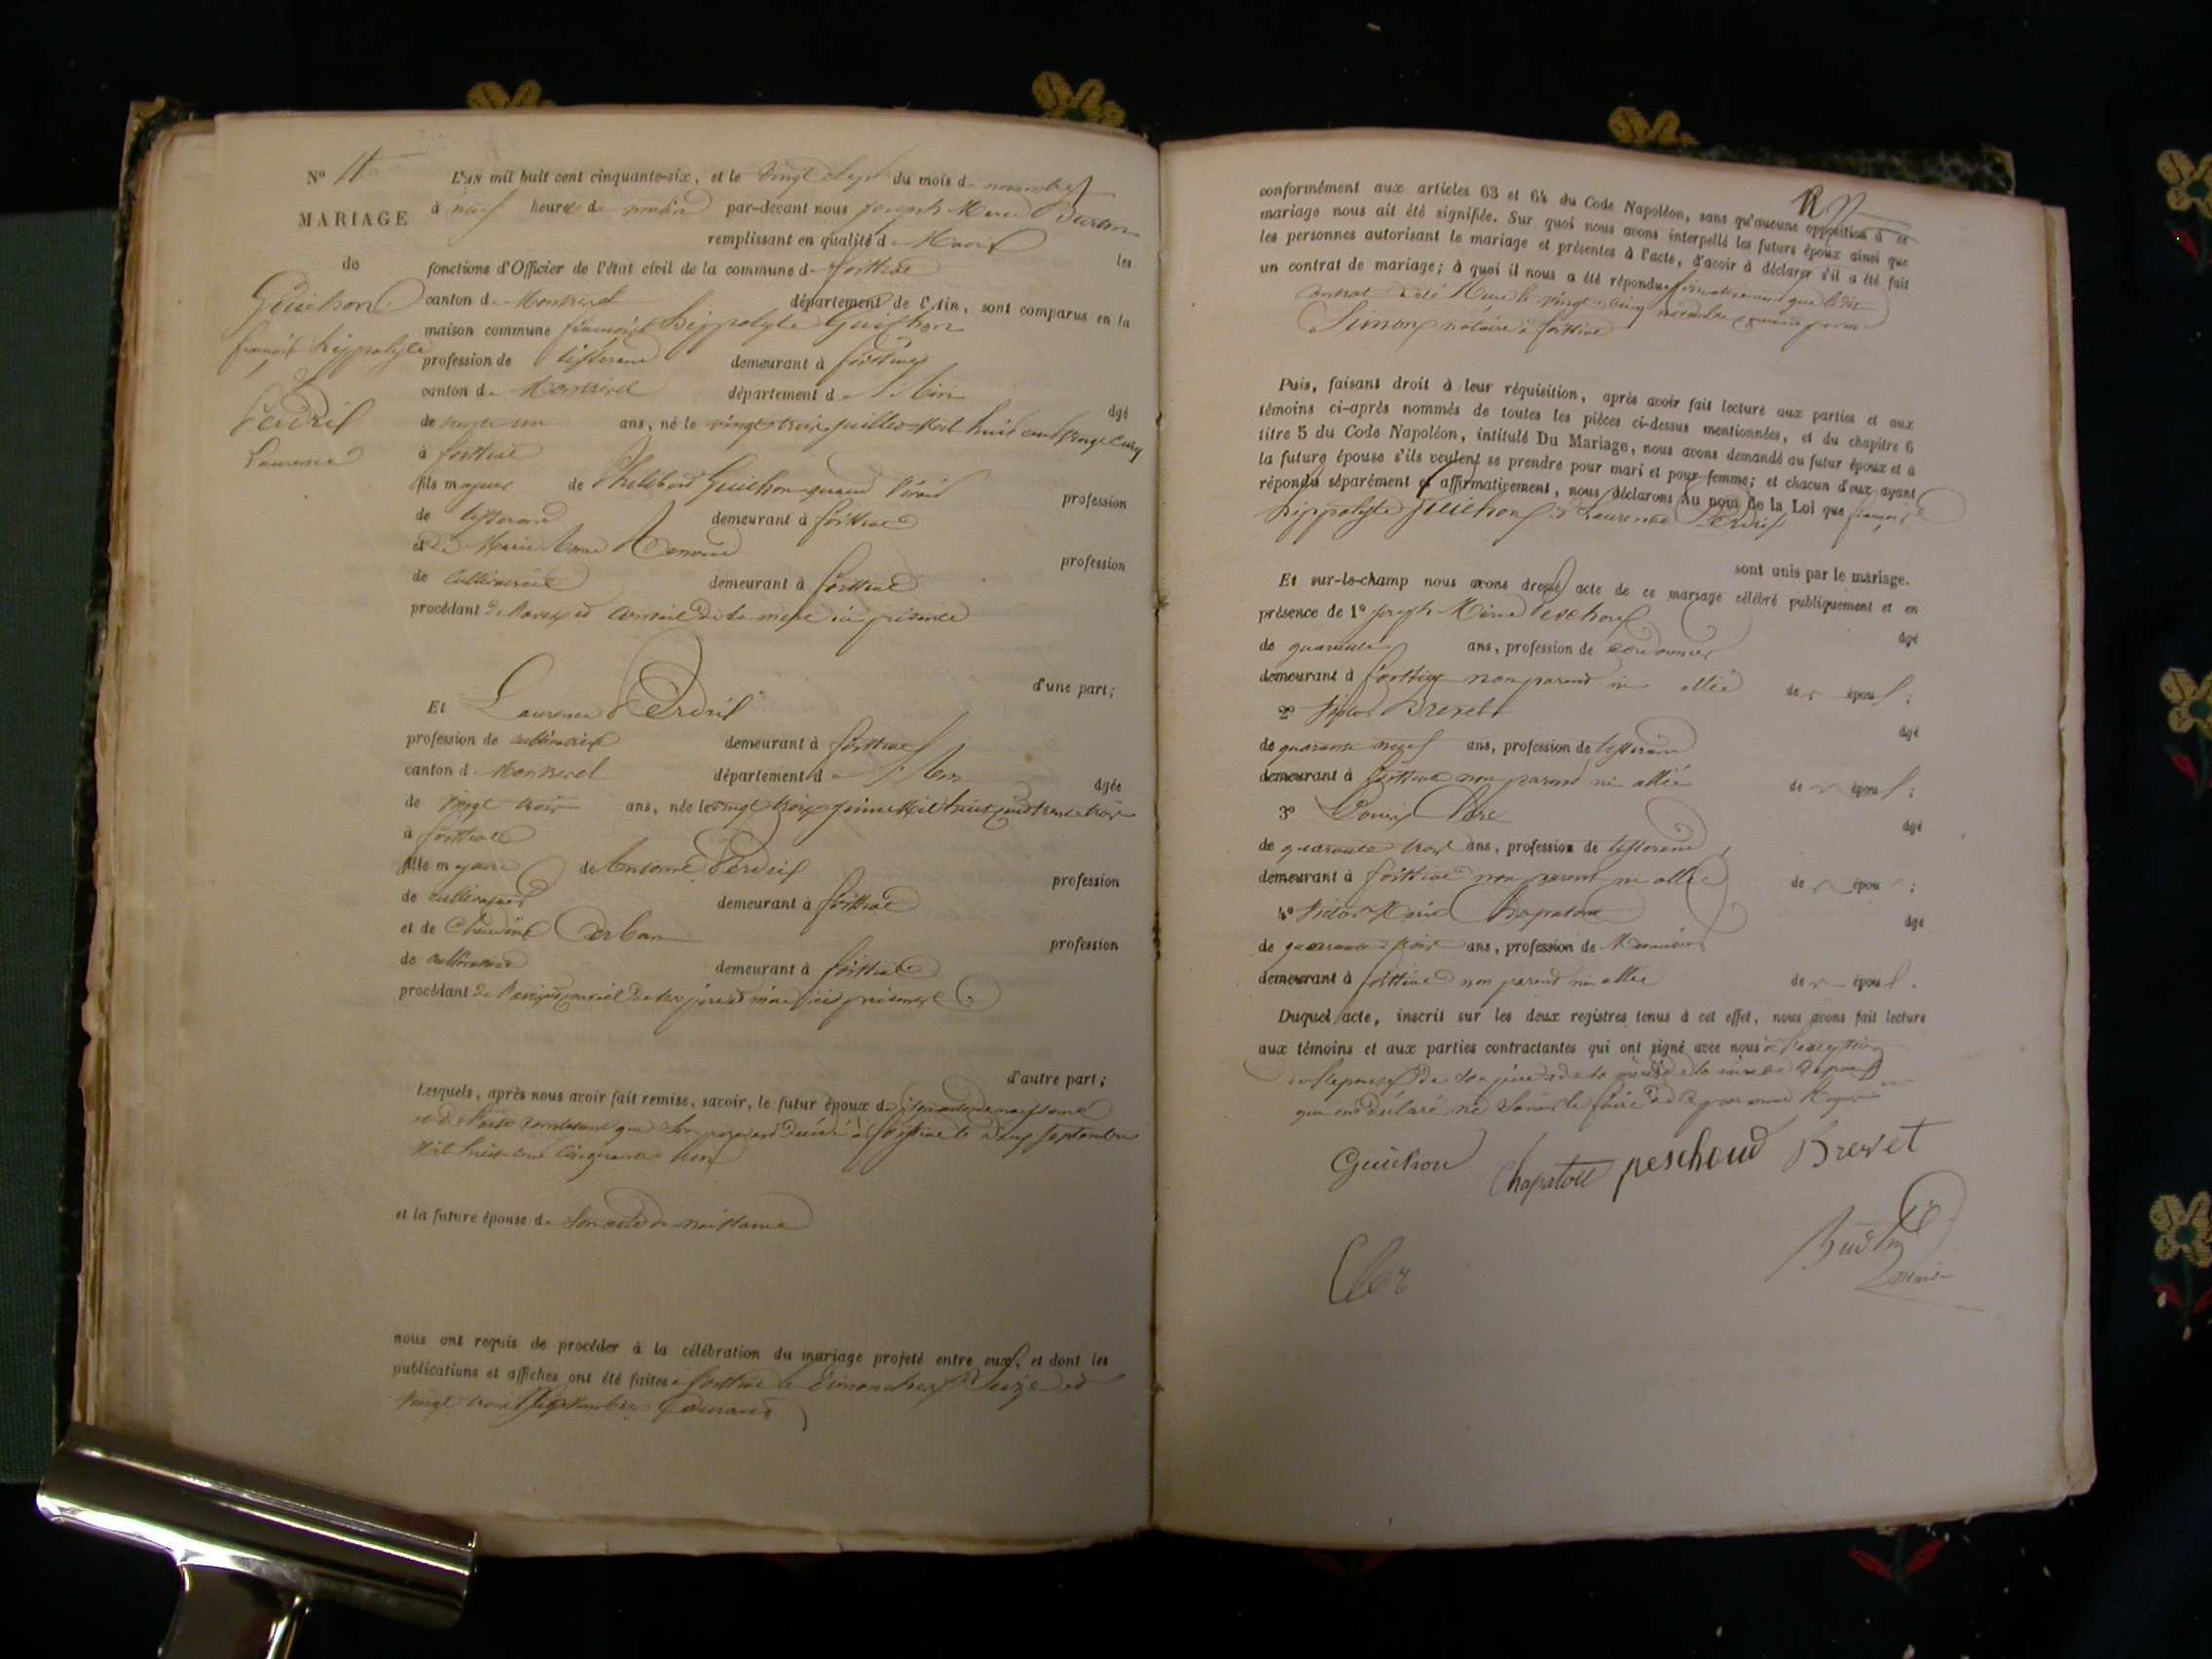 N° 11
MARIAGE
de
Guichon
françois hippolyte
Perdrix
Laurence
L'AN mil huit cent cinquante-six, et le vingt sept du mois de novembre
à neuf heures du matin par-devant nous joseph Marie
remplissant en qualité de Maire les
fonctions d'Officier de l'état civil de la commune de foissiat
canton de Montrevel département de l'Ain, sont comparus en la
maison commune françois hippolyte Guichon
profession de tisserand demeurant à foissiat
canton de Montrevel département de l'Ain âgé
de trente un ans, né le vingt trois juillet Mil huit cent vingt cinq
à foissiat
fils majeur de Philibert Guichon quand vivait profession
de tisserand demeurant à foissiat
et de Marie profession
de cultivatrice demeurant à foissiat
procédant de l'avis et conseil de sa mère ici présente
d'une part;
Et Laurence Perdrix
profession de cultivatrice demeurant à foissiat
canton de Montrevel département de l'Ain âgée
de vingt trois ans, née le vingt trois juin Mil huit cent trente trois
à foissiat
fille majeure de Antoine Perdrix profession
de cultivateur demeurant à foissiat
et de Claudine profession
de cultivatrice demeurant à foissiat
procédant de l'avis et conseil de ses père et mère ici présents
d'autre part;
Lesquels, après nous avoir fait remise, savoir, le futur époux de son acte de naissance
et de l'acte constatant que son père est décédé à foissiat le septembre
Mil huit cent cinquante
et la future épouse de son acte de naissance
nous ont requis de procéder à la célébration du mariage projeté entre eux, et dont les
publications et affiches ont été faites à foissiat le dimanches seize et
vingt trois courant
conformément aux articles 63 et 64 du Code Napoléon, sans qu'aucune opposition à ce
mariage nous ait été signifiée. Sur quoi nous avons interpellé les futurs époux ainsi que
les personnes autorisant le mariage et présentes à l'acte, d'avoir à déclarer s'il a été fait
un contrat de mariage; à quoi il nous a été répondu affirmativement que le dit
contrat a été reçu le vingt cinq novembre courant par m
Simon notaire à foissiat
Puis, faisant droit à leur réquisition, après avoir fait lecture aux parties et aux
témoins ci-après nommés de toutes les pièces ci-dessus mentionnées, et du chapitre 6
titre 5 du Code Napoléon, intitulé Du Mariage, nous avons demandé au futur époux et à
la future épouse s'ils veulent se prendre pour mari et pour femme; et chacun d'eux ayant
répondu séparément et affirmativement, nous déclarons Au nom de la Loi que françois
hippolyte Guichon et Laurence Perdrix
sont unis par le mariage.
Et sur-le-champ nous avons dressé acte de ce mariage célébré publiquement et en
présence de 1° joseph Marie Peschoux âgé
de quarante ans, profession de cordonnier
demeurant à foissiat non parent ni allié des époux;
2° Victor Brevet âgé
de quarante neuf ans, profession de tisserand
demeurant à foissiat non parent ni allié des époux;
3° Louis Clerc âgé
de quarante trois ans, profession de tisserand
demeurant à foissiat non parent ni allié des époux;
4° Victor Marie Chapatou âgé
de quarante trois ans, profession de Menuisier
demeurant à foissiat non parent ni allié des époux.
Duquel acte, inscrit sur les deux registres tenus à cet effet, nous avons fait lecture
aux témoins et aux parties contractantes qui ont signé avec nous à l'exception
de l'épouse de son père et de sa mère et de la mère de l'époux
qui ont déclaré ne savoir le faire de ce par nous requis
Guichon Chapatou peschoud Brevet
Clerc
maire